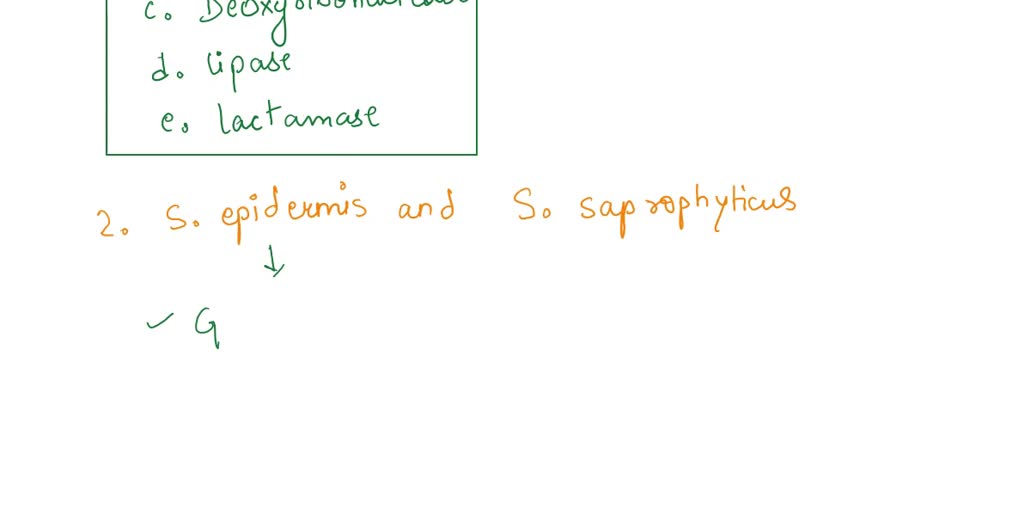 c.
d. lipase
e. lactamase
2. S. epidermis and S. saprophyticus
↓
✓ G